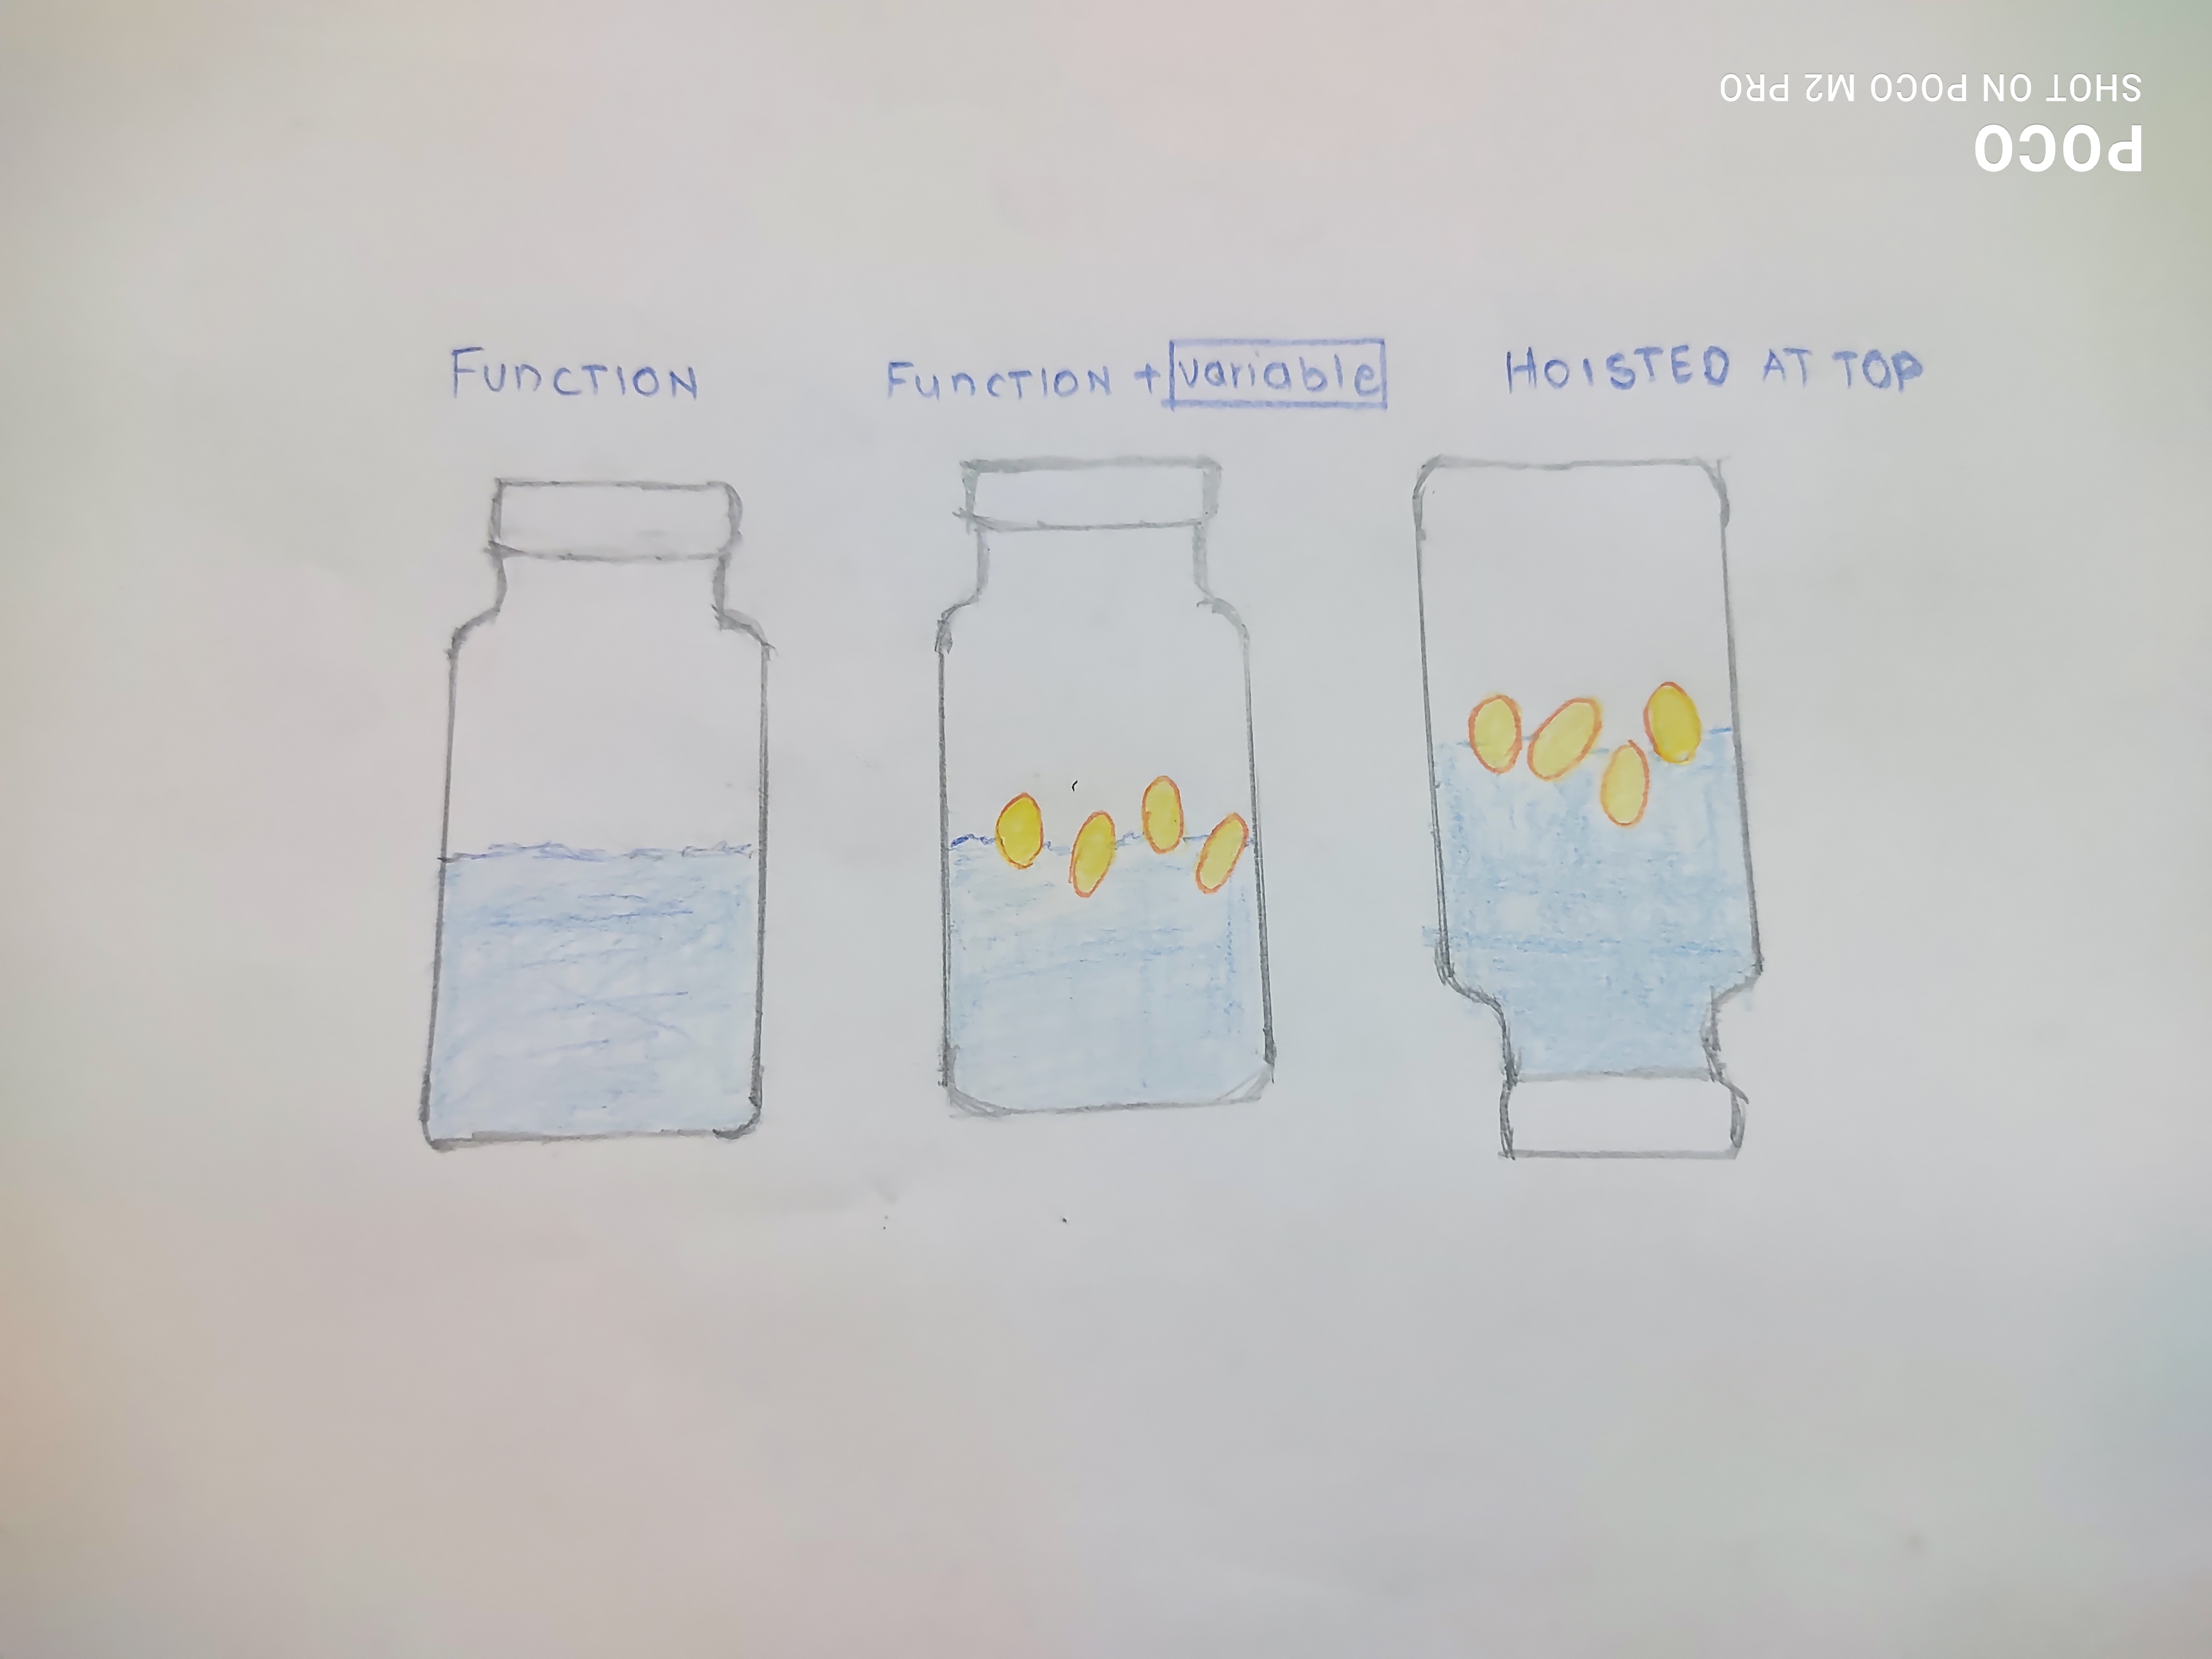 FUNCTION
FUNCTION + variable
HOISTED AT TOP
POCO
SHOT ON POCO M2 PRO